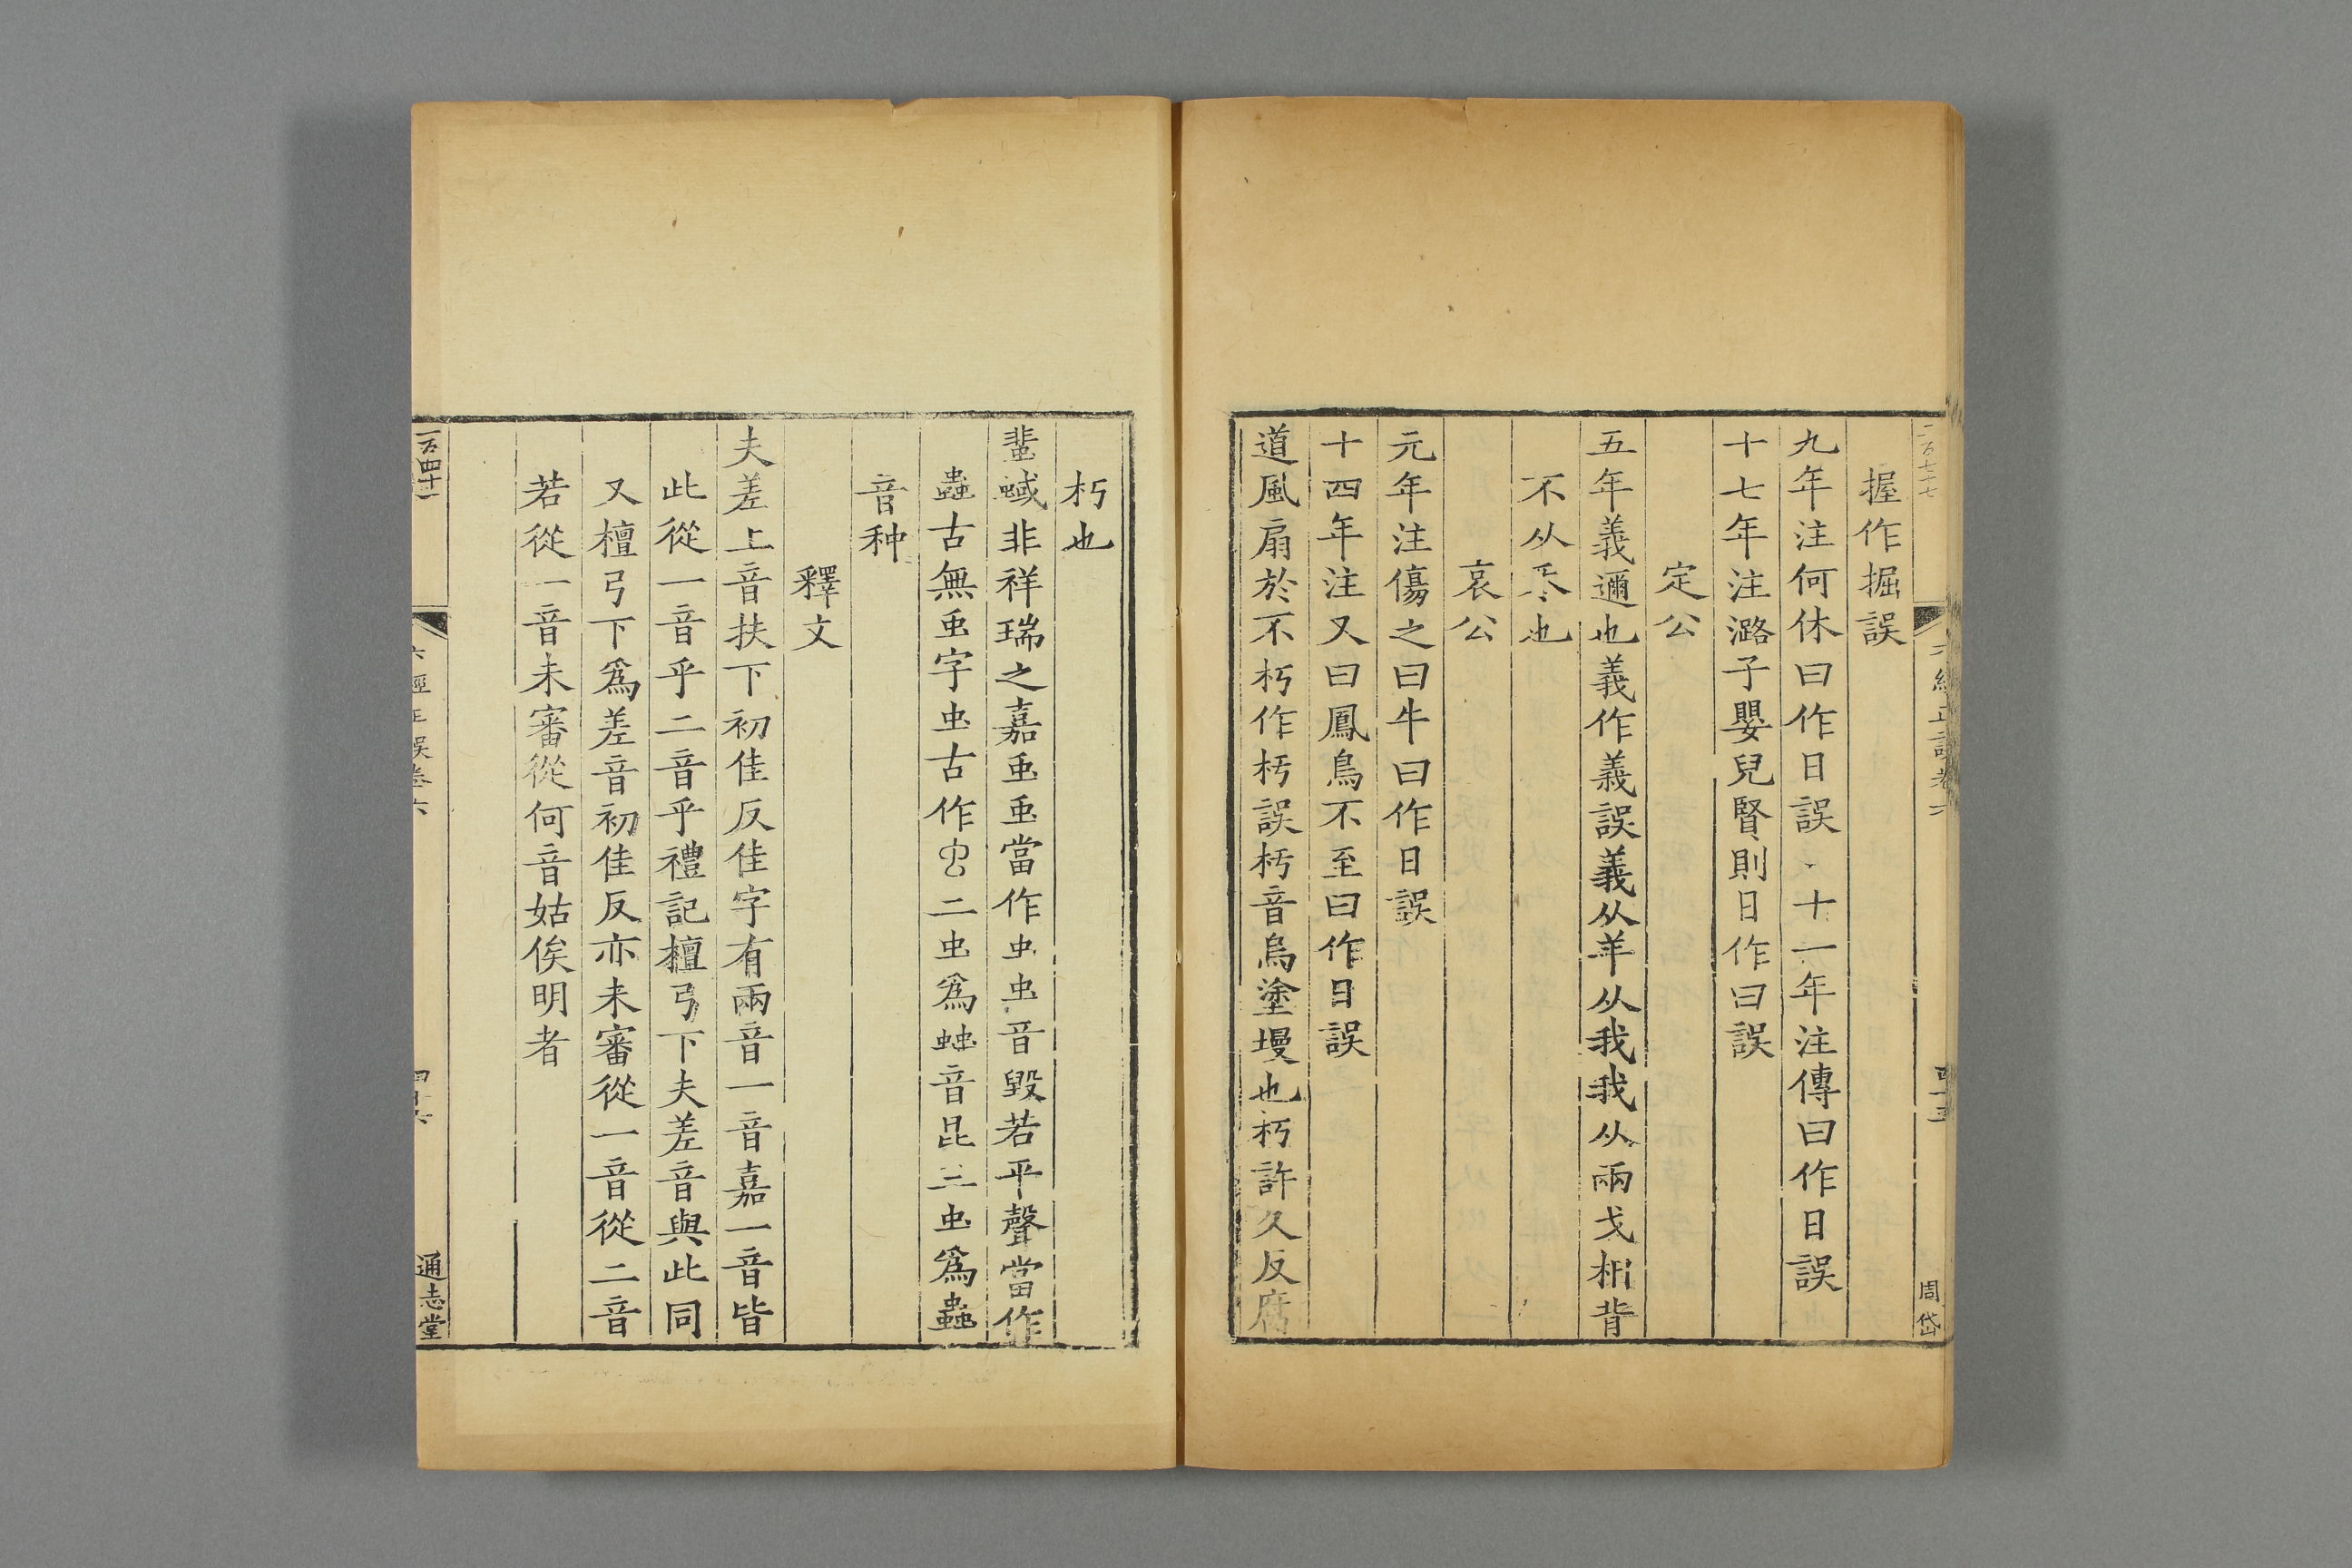 握作掘誤
九年注何休曰作日誤、十一年注傳曰作日誤
十七年注潞子嬰兒賢則日作曰誤
定公
五年義邇也義作義誤義从羊从我我从兩戈相背
不从禾也
哀公
元年注傷之曰牛曰作日誤
十四年注又曰鳳鳥不至曰作日誤
道風扇於不朽作杇誤杇音烏塗墁也朽許久反腐
周岱
朽也
蜚蜮非祥瑞之嘉䖝䖝當作虫虫音毀若平聲當作
蟲古無䖝字虫古作二虫爲䖵音昆三虫爲蟲
音种
釋文
夫差上音扶下初佳反佳字有兩音一音嘉一音皆
此從一音乎二音乎禮記檀弓下夫差音與此同
又檀弓下爲差音初佳反亦未審從一音從二音
若從一音未審從何音姑俟明者
一百四十一
六經正誤卷六
通志堂